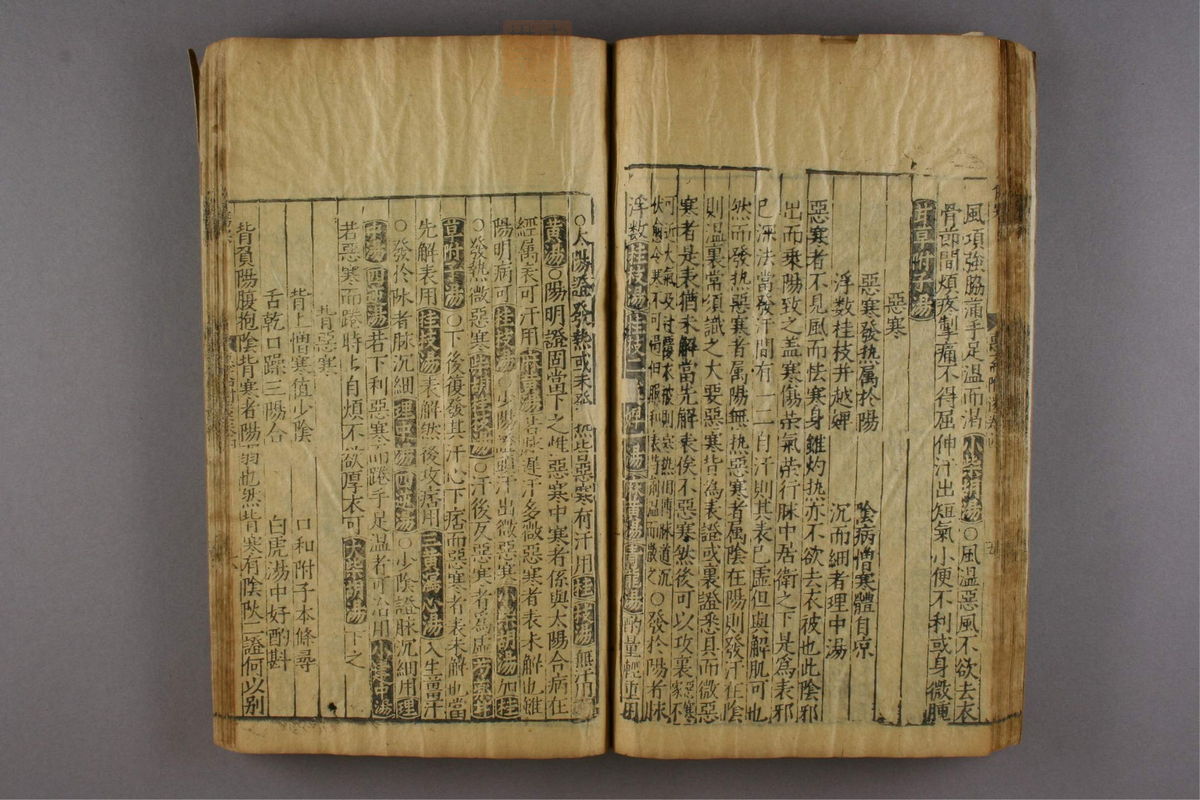 風項強脇滿手足溫而渴小柴胡湯○風溫惡風不欲去衣
骨節間煩疼掣痛不得屈伸汗出短氣小便不利或身微腫
甘草附子湯
惡寒
惡寒發热属於陽　陰病憎寒體自凉
浮数桂枝并越婢　沉而細者理中湯
惡寒者不見風而怯寒身雖灼热亦不欲去衣被也此陰邪
出而乗陽致之盖寒傷荣氣荣行脉中居衛之下是為表邪
已深法當發汗間有一二自汗則其表已虛但與解肌可也
然而發热惡寒者属陽無热惡寒者属陰在陽則發汗在陰
則溫裏常須識之大要惡寒皆為表證或裏證悉具而微惡
寒者是表猶未解當先解表俟不惡寒然後可以攻裏
○發於陽者脉
浮数桂枝湯桂枝二 婢一湯 黄湯青龍湯酌量輕重用
○太陽證發熱或未發熱 惡寒有汗用桂枝湯無汗用
黄湯○陽明證固當下之 惡寒中寒者係與太陽合病在
經属表可汗用麻黄湯 脉遲汗多微惡寒者表未解也雖
陽明病可桂枝湯○少陽證 汗出微惡寒小柴胡湯加桂
○發熱微惡寒柴胡桂枝湯○汗後反惡寒者為虛芍藥甘
草附子湯○下後復發其汗心下痞而惡寒者表未解也當
先解表用桂枝湯表解然後攻痞用三黄瀉心湯入生薑汗
○發於陰者脉沉細理中湯四逆湯○少陰證脉沉細用理
中湯四逆湯若下利惡寒而踡手足溫者可治用小建中湯
若惡寒而踡時时自煩不欲厚衣可大柴胡湯下之
背惡寒
背上憎寒值少陰　口和附子本條尋
舌乾口躁三陽合　白虎湯中好酌斟
背負陽腹抱陰背寒者陽弱也然背寒有陰陽二證何以别